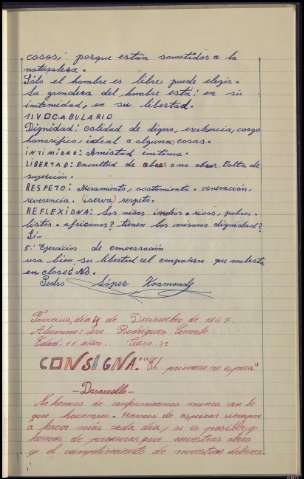 cosas; porque están sometidas a la
naturaleza.
Sólo el hombre es libre puede elegir.
La grandeza del hombre está: en su
intimidad, en su libertad.
1) VOCABULARIO
Dignidad: calidad de digno, excelencia, cargo
honorífico ideal a alguna cosa.
INTIMIDAD: Amistad íntima.
LIBERTAD: Facultad de obrar o no obrar. Falta de
sujeción.
RESPETO: Miramiento, acatamiento. veneración.
reverencia. (serva) respeto.
REFLEXIONA: Los niños indios - ricos, pobres.
listos - africanos? tienen los mismos dignidad?
Si-
5: Ejercicio de conversación
usa bien su libertad el compañero que molesta
en clase? No.
Pedro López
día 4 de Diciembre de 196
Alumno: José Rodríguez
Edad. 11 años.
CONSIGNA: "El primero no espera"
-Desarrollo-
No hemos de conformarnos nunca con lo
que hacemos. Hemos de aspirar siempre
a hacer más cada día, y si es posible
hemos de procurar que nuestras obras
y el cumplimiento de nuestros deberes